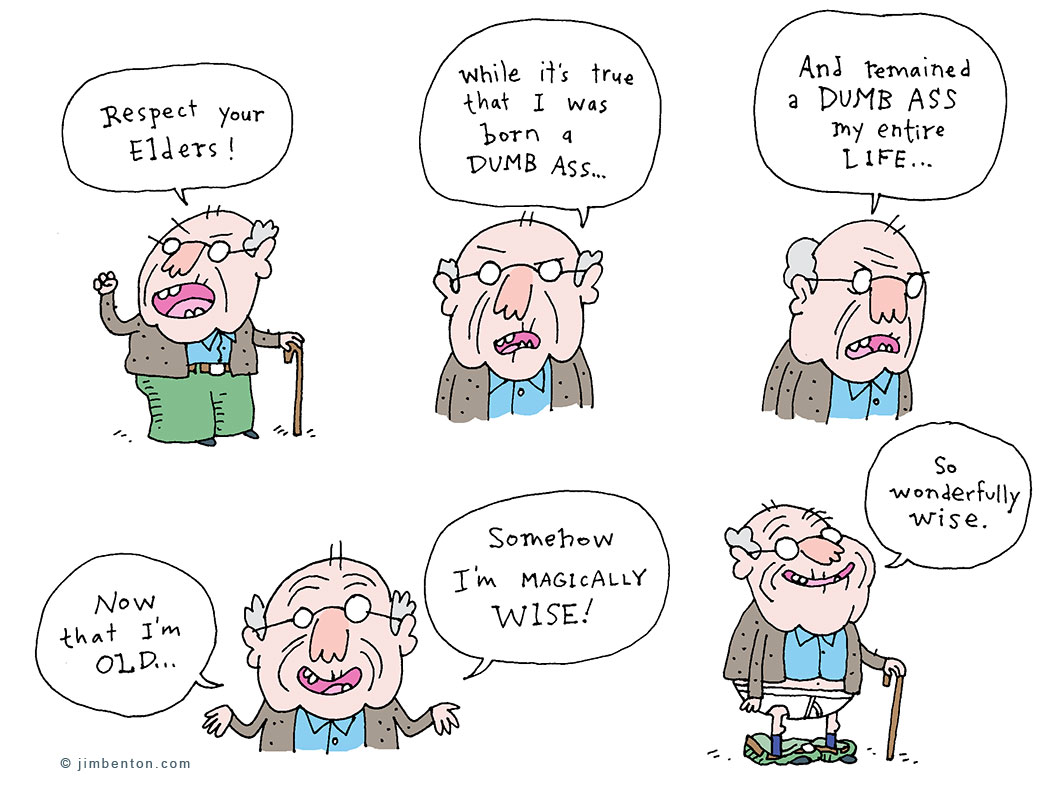 Respect your
Elders!
While it's true
that I was
born a
DUMB ASS...
And remained
a DUMB ASS
my entire
LIFE...
Now
that I'm
OLD...
Somehow
I'm MAGICALLY
WISE!
So
wonderfully
wise.
© jimbenton.com